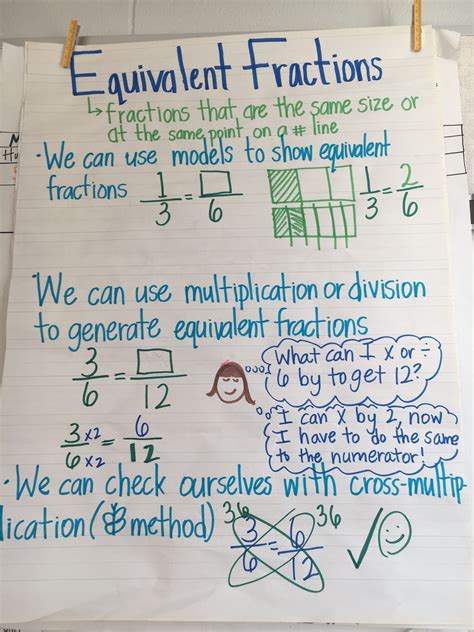 Equivalent Fractions
↳ fractions that are the same size or
at the same point on a # line
· We can use models to show equivalent
fractions 1/3 = □/6 1/3 = 2/6
· We can use multiplication or division
to generate equivalent fractions
3/6 = □/12
What can I x or ÷
6 by to get 12?
I can x by 2, now
I have to do the same
to the numerator!
3 x2 / 6 x2 = 6/12
· We can check ourselves with cross-multip-
lication ( method)
36 3/6 = 6/12 36 ✓